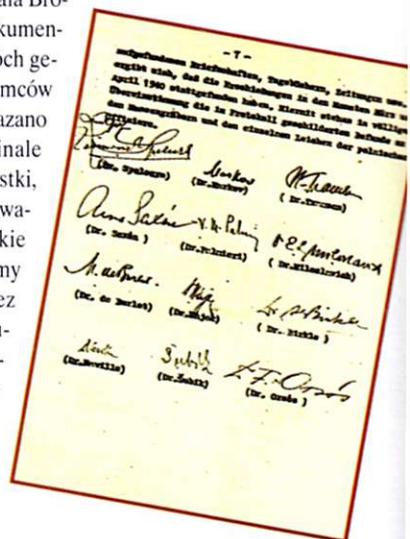 ala Bro-
kumen-
och ge-
mców
azano
inale
stki,
wa-
kie
my
ez
u-
-
- 7 -
aufgefundenen Briefschaften, Tagebüchern, Zeitungen usw.
ergibt sich, daß die Erschießungen in den Monaten März u
April 1940 stattgefunden haben. Hiermit stehen in völlige
Übereinstimmung die im Protokoll geschilderten Befunde an
den Massengräbern und den einzelnen Leichen der polnischen
Offiziere.
(Dr. Speleers) (Dr.Markov) (Dr.Tramsen)
(Dr. Saxén ) (Dr.Palmieri) (Dr.Miloslavich)
(Dr. de Burlet) (Dr.Hájek) (Dr. Birkle )
(Dr.Naville) (Dr.Šubík) (Dr. Orsós )